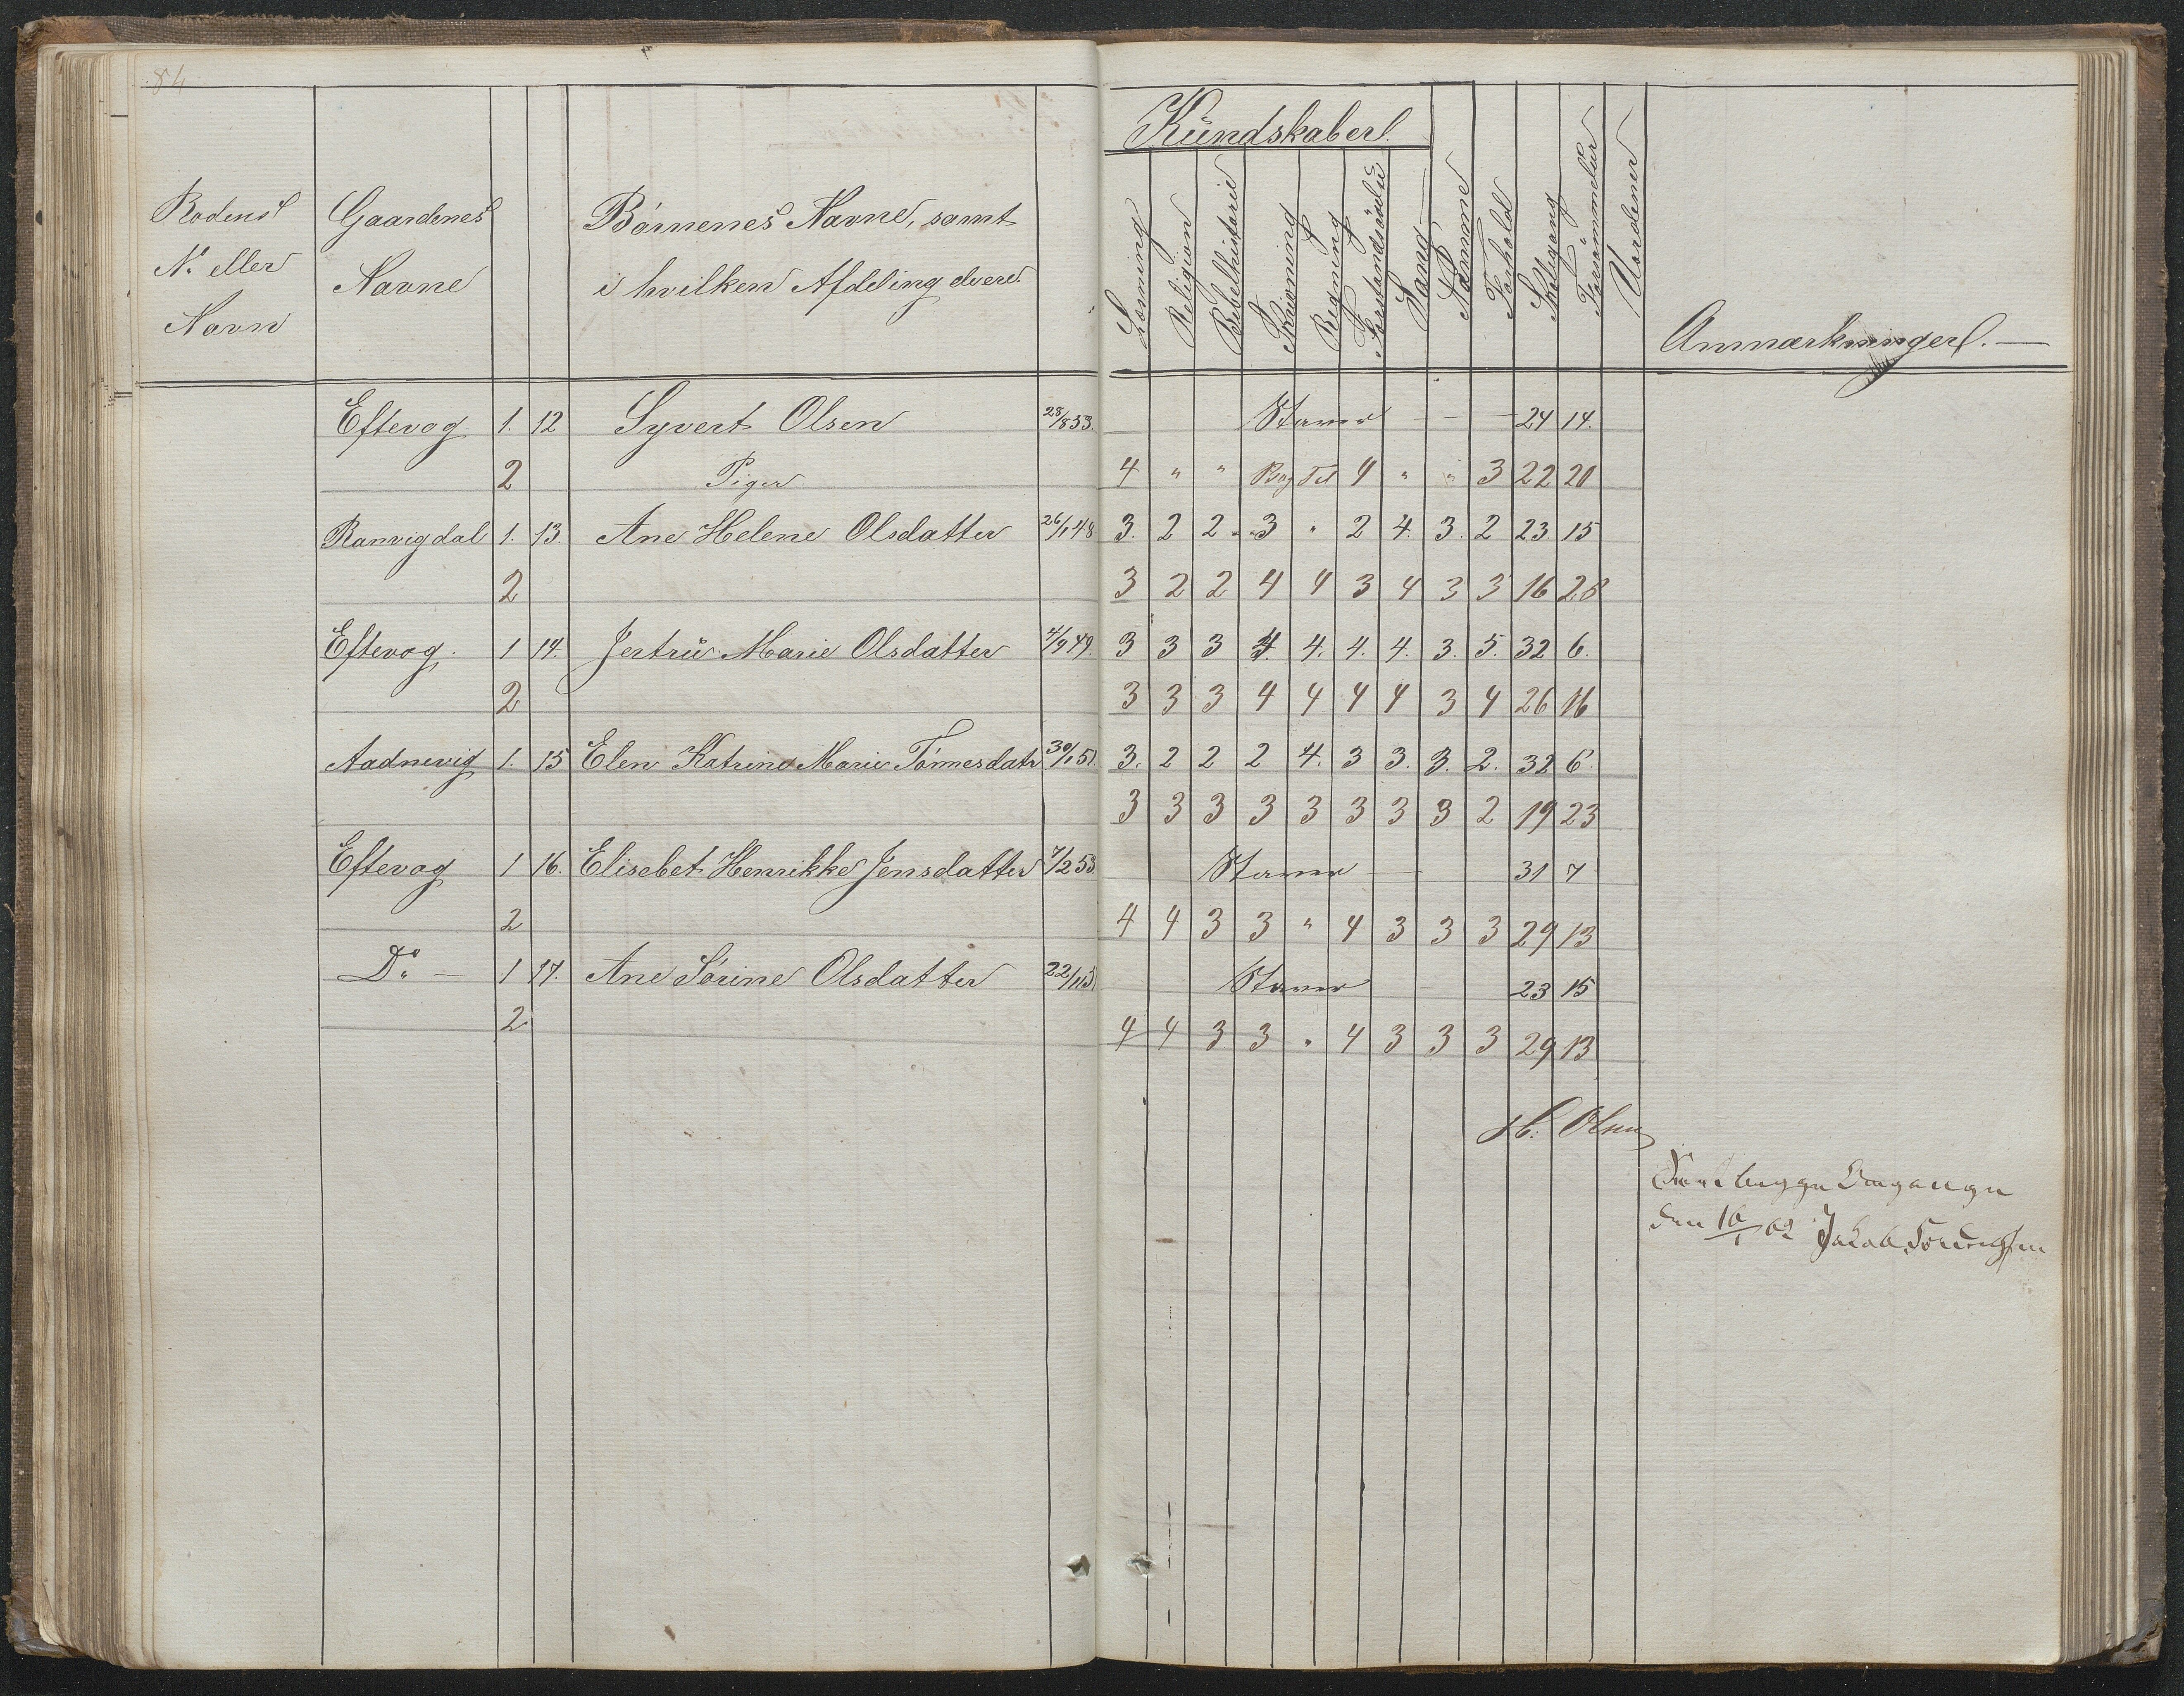 84
Rodens
No. eller
Navn
Gaardenes
Navne
Börnenes Navne, samt
i hvilken Afdeling de ere.
Kundskaber.
Læsning
Religion
Bibelhistorie
Skrivning
Regning
Forstandsövelse
Sang
Nemme
Forhold
Skolegang
Forsömmelser
Uordener
Anmærkninger. —
Eftevog 1. 12 Syvert Olsen 28/8 53. Staver — — 24 14.
2 Piger 4 " " Bog Tel 4 " " 3 22 20
Ranvigdal 1. 13. Ane Helene Olsdatter 26/1 48 3. 2 2 3 " 2 4. 3. 2 23. 15
2 3 2 2 4 4 3 4 3 3 16 28
Eftevog. 1 14. Jertru Marie Olsdatter 4/9 49. 3 3 3 4. 4. 4. 4. 3. 5. 32 6.
2 3 3 3 4 4 4 4 3 4 26 16
Aadnevig 1. 15 Elen Katrine Marie Tönnesdatr 30/1 51. 3. 2 2 2 4. 3 3. 3. 2. 32 6.
3 3 3 3 3 3 3 3 2 19 23
Eftevog 1 16. Elisebet Henrikke Jensdatter 7/2 53. Staver — 31 7
2 4 4 3 3 " 4 3 3 3 29 13
Do — 1 17. Ane Sörine Olsdatter 22/11 Staver 23 15
2 4 4 3 3 " 4 3 3 3 29 13
H. Olsen
begge Omgange
den 16/1 62 Jakob